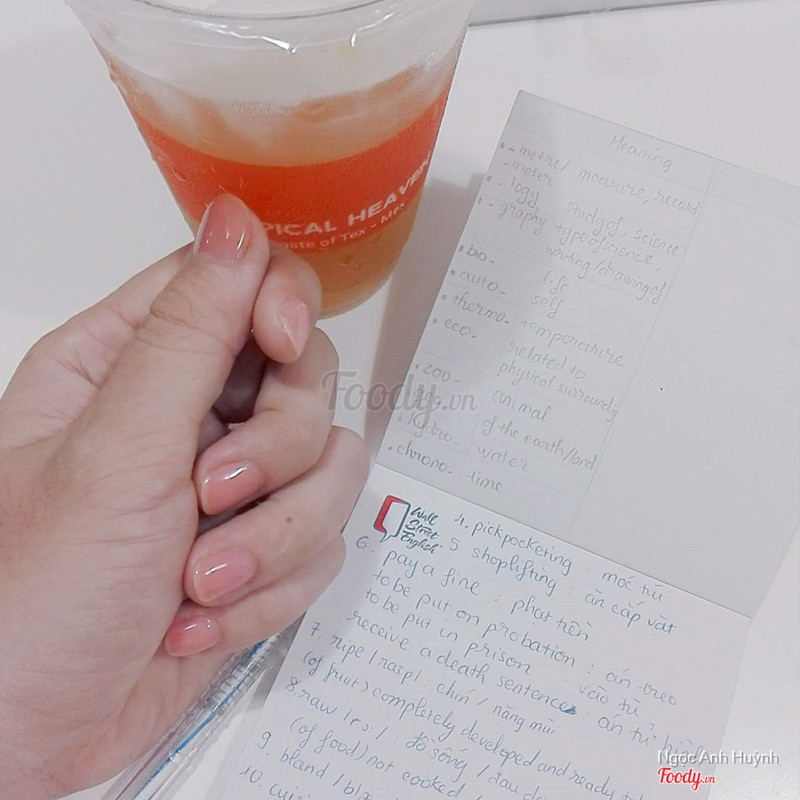 PICAL HEAVEN
Taste of Tex - Mex
Meaning
- metre/ measure, record
- meter
- logy study of, science
- graphy type of science,
writing/drawing of
bio- life
auto- self
thermo- temperature
eco- related to
physical surroundg
zoo- animal
of the earth/land
hydro- water
chrono- time
Wall
Street
English
4. pickpocketing : móc túi
5 shoplifting : ăn cắp vặt
6. pay a fine : phạt tiền
to be put on probation : án treo
to be put in prison : vào tù
receive a death sentence : án tử
7. ripe /raip/ : chín / nặng mùi
(of fruit) completely developed and ready to
8. raw /rɔ:/ : đồ sống / đau
(of food) not cooked
9. bland
10.
Foody.vn
Ngọc Anh Huỳnh
Foody.vn